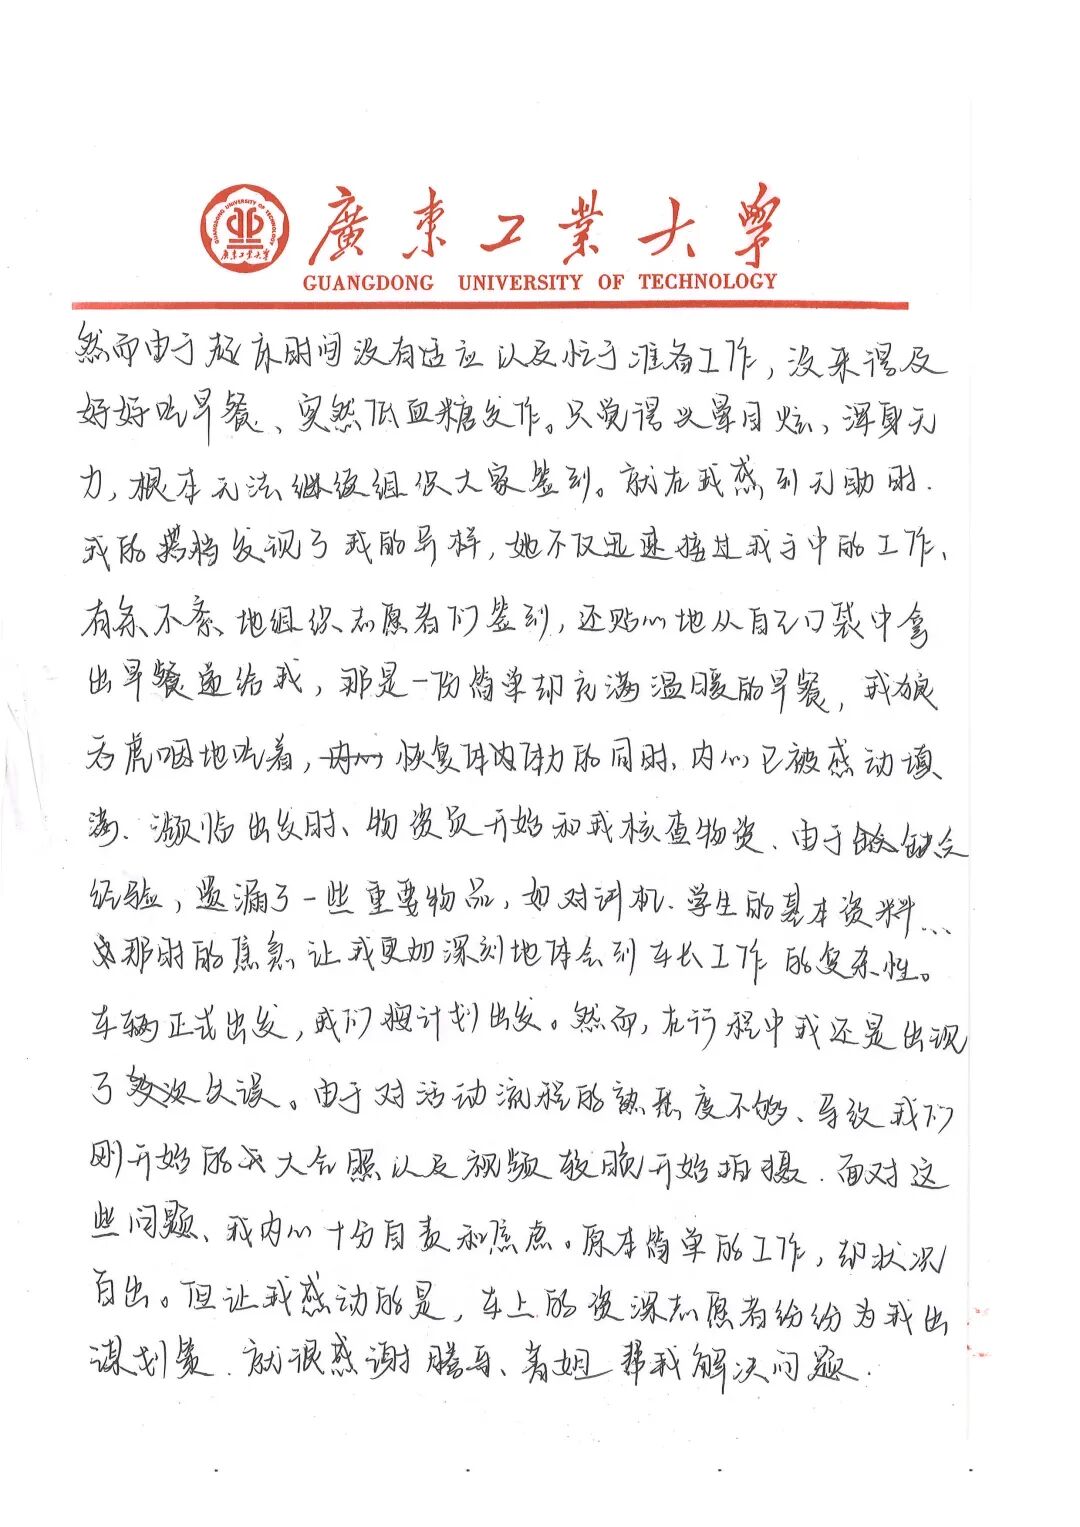 廣東工業大學
GUANGDONG UNIVERSITY OF TECHNOLOGY
然而由于起床时间没有适应以及忙于准备工作，没来得及
好好吃早餐、突然低血糖发作。只觉得头晕目炫、浑身无
力，根本无法继续组织大家签到。就在我感到无助时.
我的搭档发现了我的异样，她不仅迅速接过我手中的工作、
有条不紊地组织志愿者们签到，还贴心地从自己口袋中拿
出早餐递给我，那是一份简单却充满温暖的早餐，我狼
吞虎咽地吃着，恢复体力的同时、内心已被感动填
满、濒临出发时、物资员开始和我核查物资、由于缺乏
经验，遗漏了一些重要物品，如对讲机、学生的基本资料...
那时的焦急让我更加深刻地体会到车长工作的复杂性。
车辆正式出发，我们按计划出发。然而，在行程中我还是出现
了多次失误。由于对活动流程的熟悉度不够、导致我们
刚开始的大合照以及视频较晚开始拍摄. 面对这
些问题、我内心十分自责和焦虑。原本简单的工作，却状况
百出。但让我感动的是，车上的资深志愿者纷纷为我出
谋划策. 就很感谢腾哥、青姐帮我解决问题.